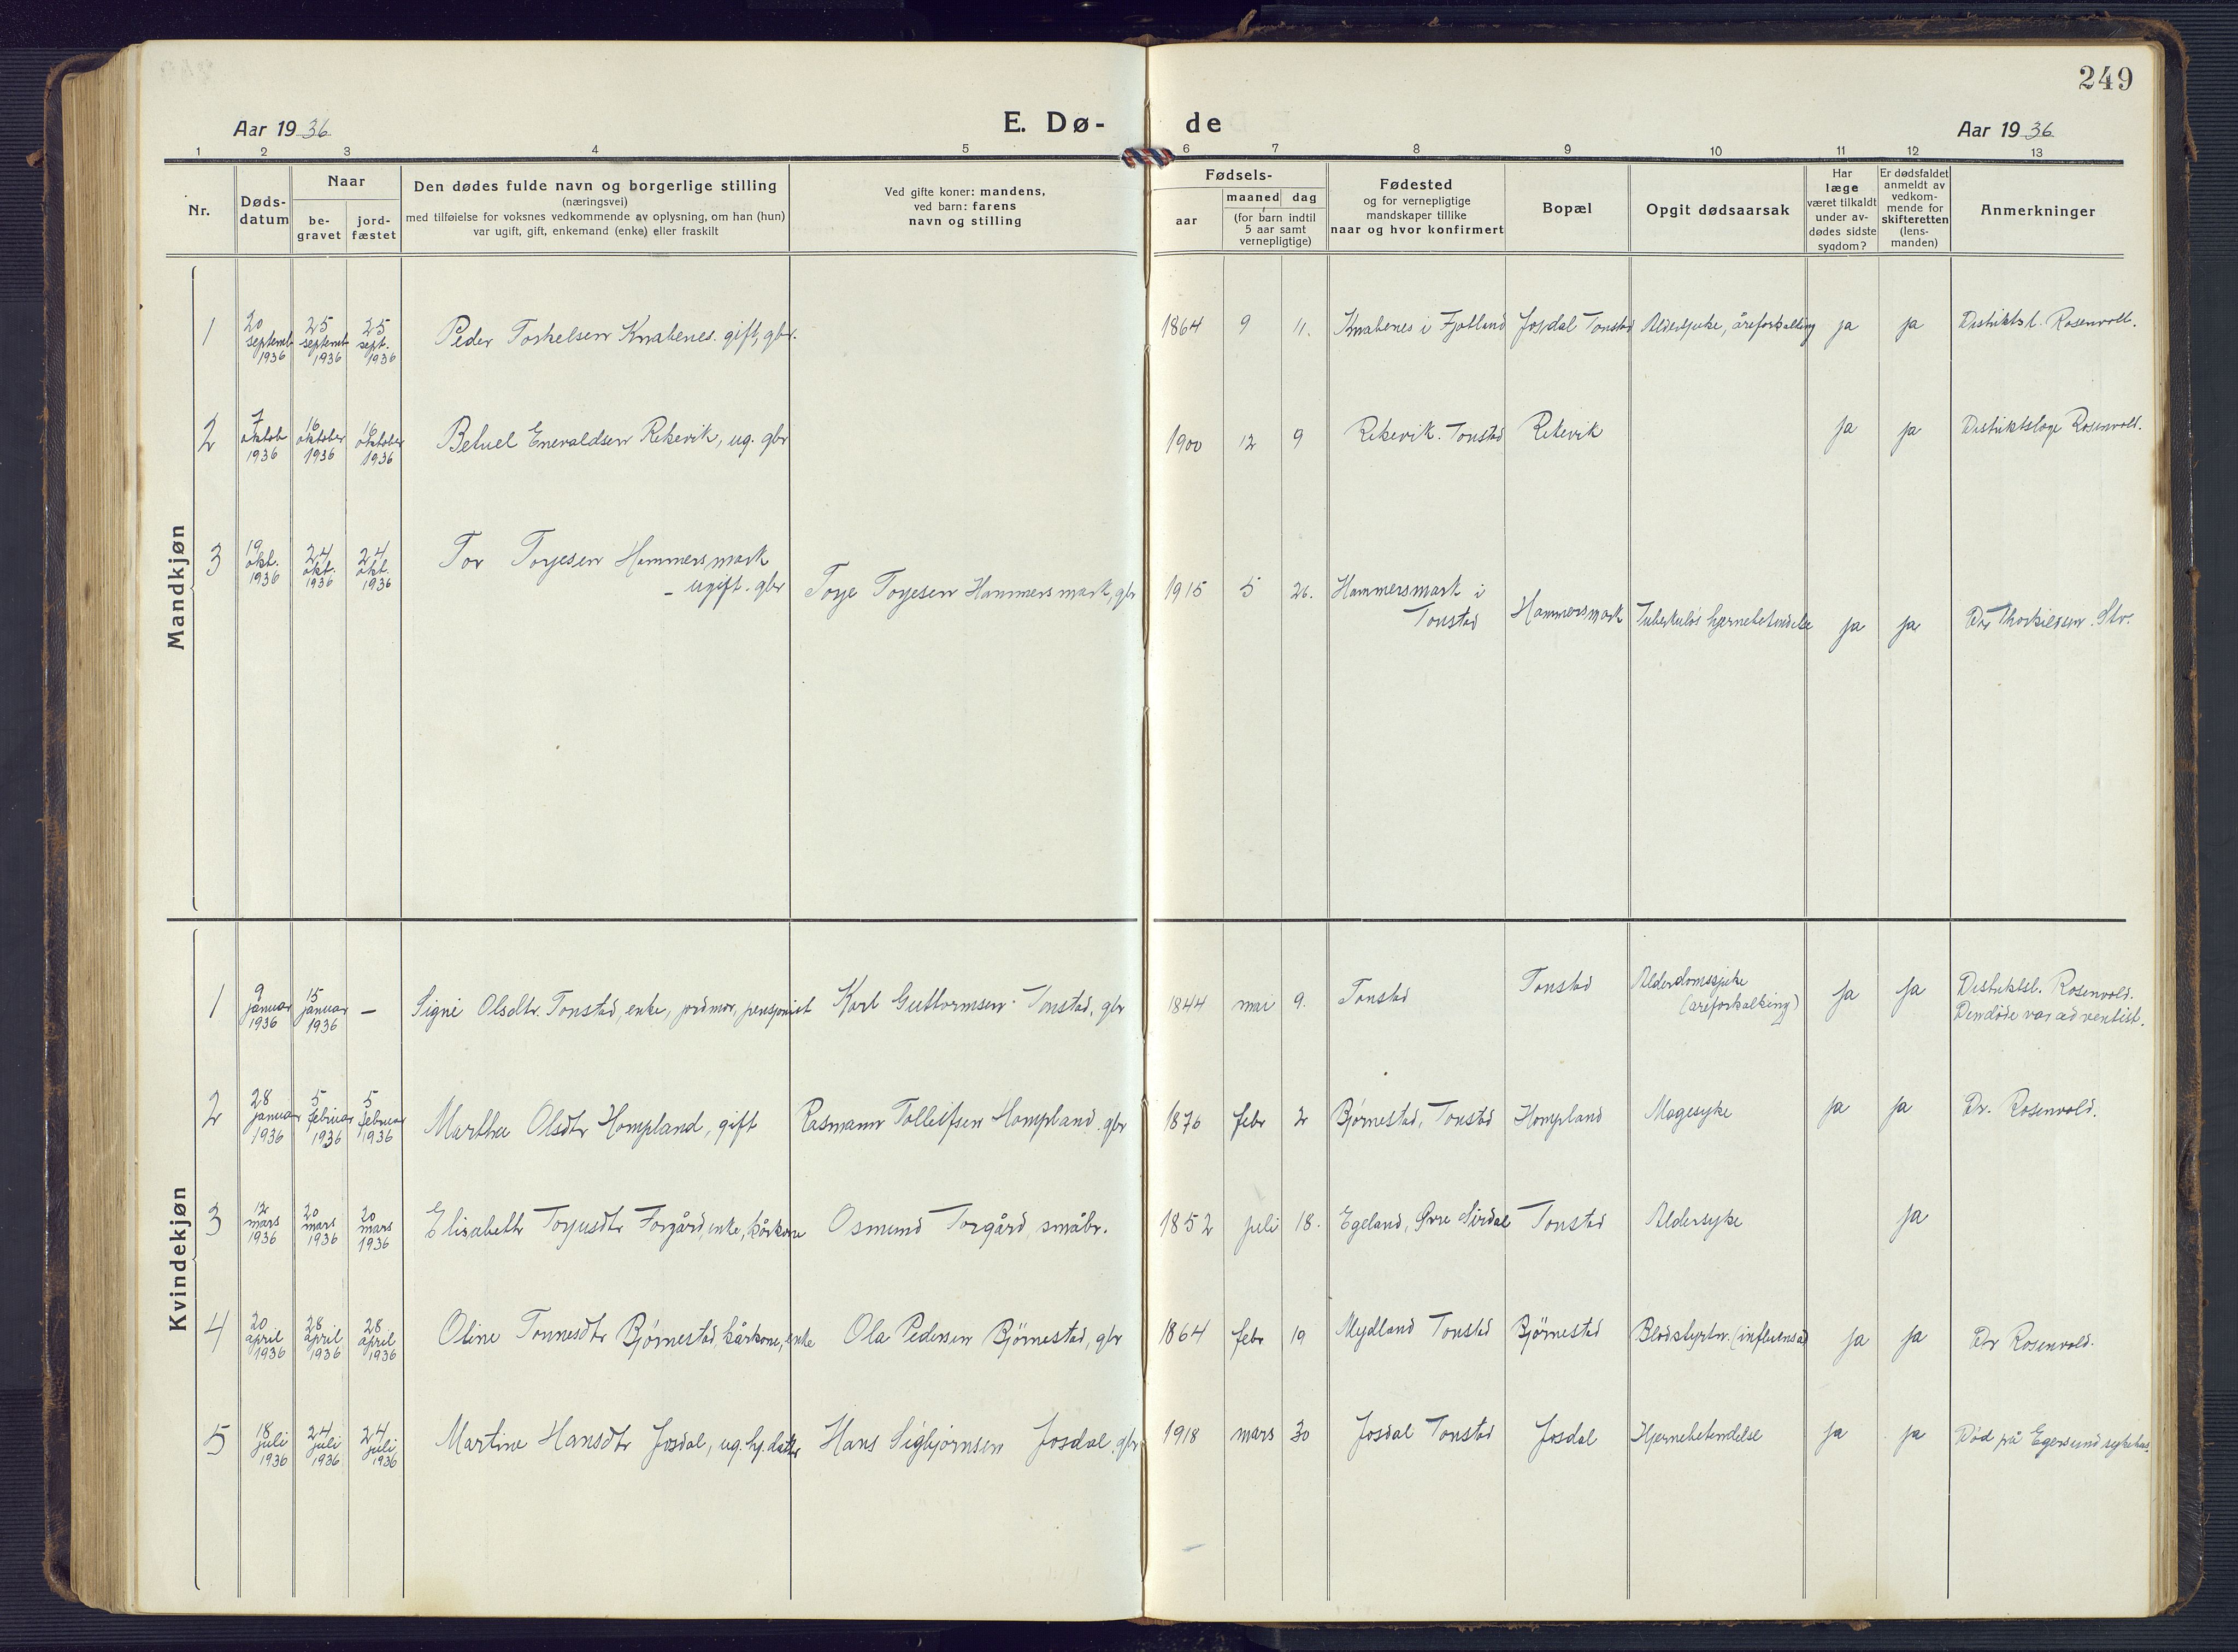 249
Aar 1936
E. Dø-
de
Aar 1936
1 2 3 4 5 6 7 8 9 10 11 12 13
Nr.
Døds-
datum
Naar
be-
gravet
jord-
fæstet
Den dødes fulde navn og borgerlige stilling
(næringsvei)
med tilføielse for voksnes vedkommende av oplysning, om han (hun)
var ugift, gift, enkemand (enke) eller fraskilt
Ved gifte koner: mandens,
ved barn: farens
navn og stilling
Fødsels-
aar
maaned dag
(for barn indtil
5 aar samt
vernepligtige)
Fødested
og for vernepligtige
mandskaper tillike
naar og hvor konfirmert
Bopæl
Opgit dødsaarsak
Har
læge
været tilkaldt
under av-
dødes sidste
sygdom?
Er dødsfaldet
anmeldt av
vedkom-
mende for
skifteretten
(lens-
manden)
Anmerkninger
Mandkjøn
1
20
septemb
1936
25
septemb
1936
25
sept.
1936
Peder Torkelsen Knabenes. gift, gbr.
1864 9 11.
Knabenes i Fjotland
Josdal Tonstad
Alderssjuke, åreforkalking
ja
ja
Distriktsl. Rosenvold.
2
7
oktob
1936
16
oktober
1936
16
oktober
1936
Betuel Enevaldsen Rekevik, ug. gbr
1900 12 9
Rekevik. Tonstad
Rekevik
ja
ja
Distriktslæge Rosenvold.
3
19
okt.
1936
24
okt.
1936
24
okt.
1936
Tor Torjesen Hammersmark
- ugift. gbr
Torje Torjesen Hammersmark, gbr
1915 5 26.
Hammersmark i
Tonstad
Hammersmark
Tuberkuløs hjernebetendelse
ja
ja
Dr. Thorkildsen. Str.
Kvindekjøn
1
9
januar
1936
15
januar
1936
—
Signe Olsdtr. Tonstad, enke, jordmor, pensjonist
Karl Guttormsen Tonstad, gbr
1844 mai 9.
Tonstad
Tonstad
Alderdomssjuke
(åreforkalking)
ja
ja
Distriktsl. Rosenvold.
Den døde var adventist.
2
28
januar
1936
5
februar
1936
5
februar
1936
Martha Olsdtr Hompland, gift
Rasmann Tolleifsen Hompland. gbr
1876 febr 2
Bjørnestad, Tonstad
Hompland
Magesyke
ja
ja
Dr. Rosenvold.
3
12
mars
1936
20
mars
1936
20
mars
1936
Elisabeth Torjusdtr Torgård, enke, kårkone
Osmund Torgård, småbr.
1852 juli 18.
Egeland, Øvre Sirdal
Tonstad
Aldersyke
ja
4
20
april
1936
28
april
1936
28
april
1936
Oline Tonnesdtr Bjørnestad, kårkone, enke
Ola Pedersen Bjørnestad, gbr
1864 febr 19
Mydland Tonstad
Bjørnestad
Blodstyrtn. (influensa)
ja
ja
Dr Rosenvold.
5
18
juli
1936
24
juli
1936
24
juli
1936
Martine Hansdtr Josdal, ug. hj. datter
Hans Sigbjørnsen Josdal. gbr
1918 mars 30
Josdal Tonstad
Josdal
Hjernebetendelse
ja
ja
Død på Egersund sykehus.